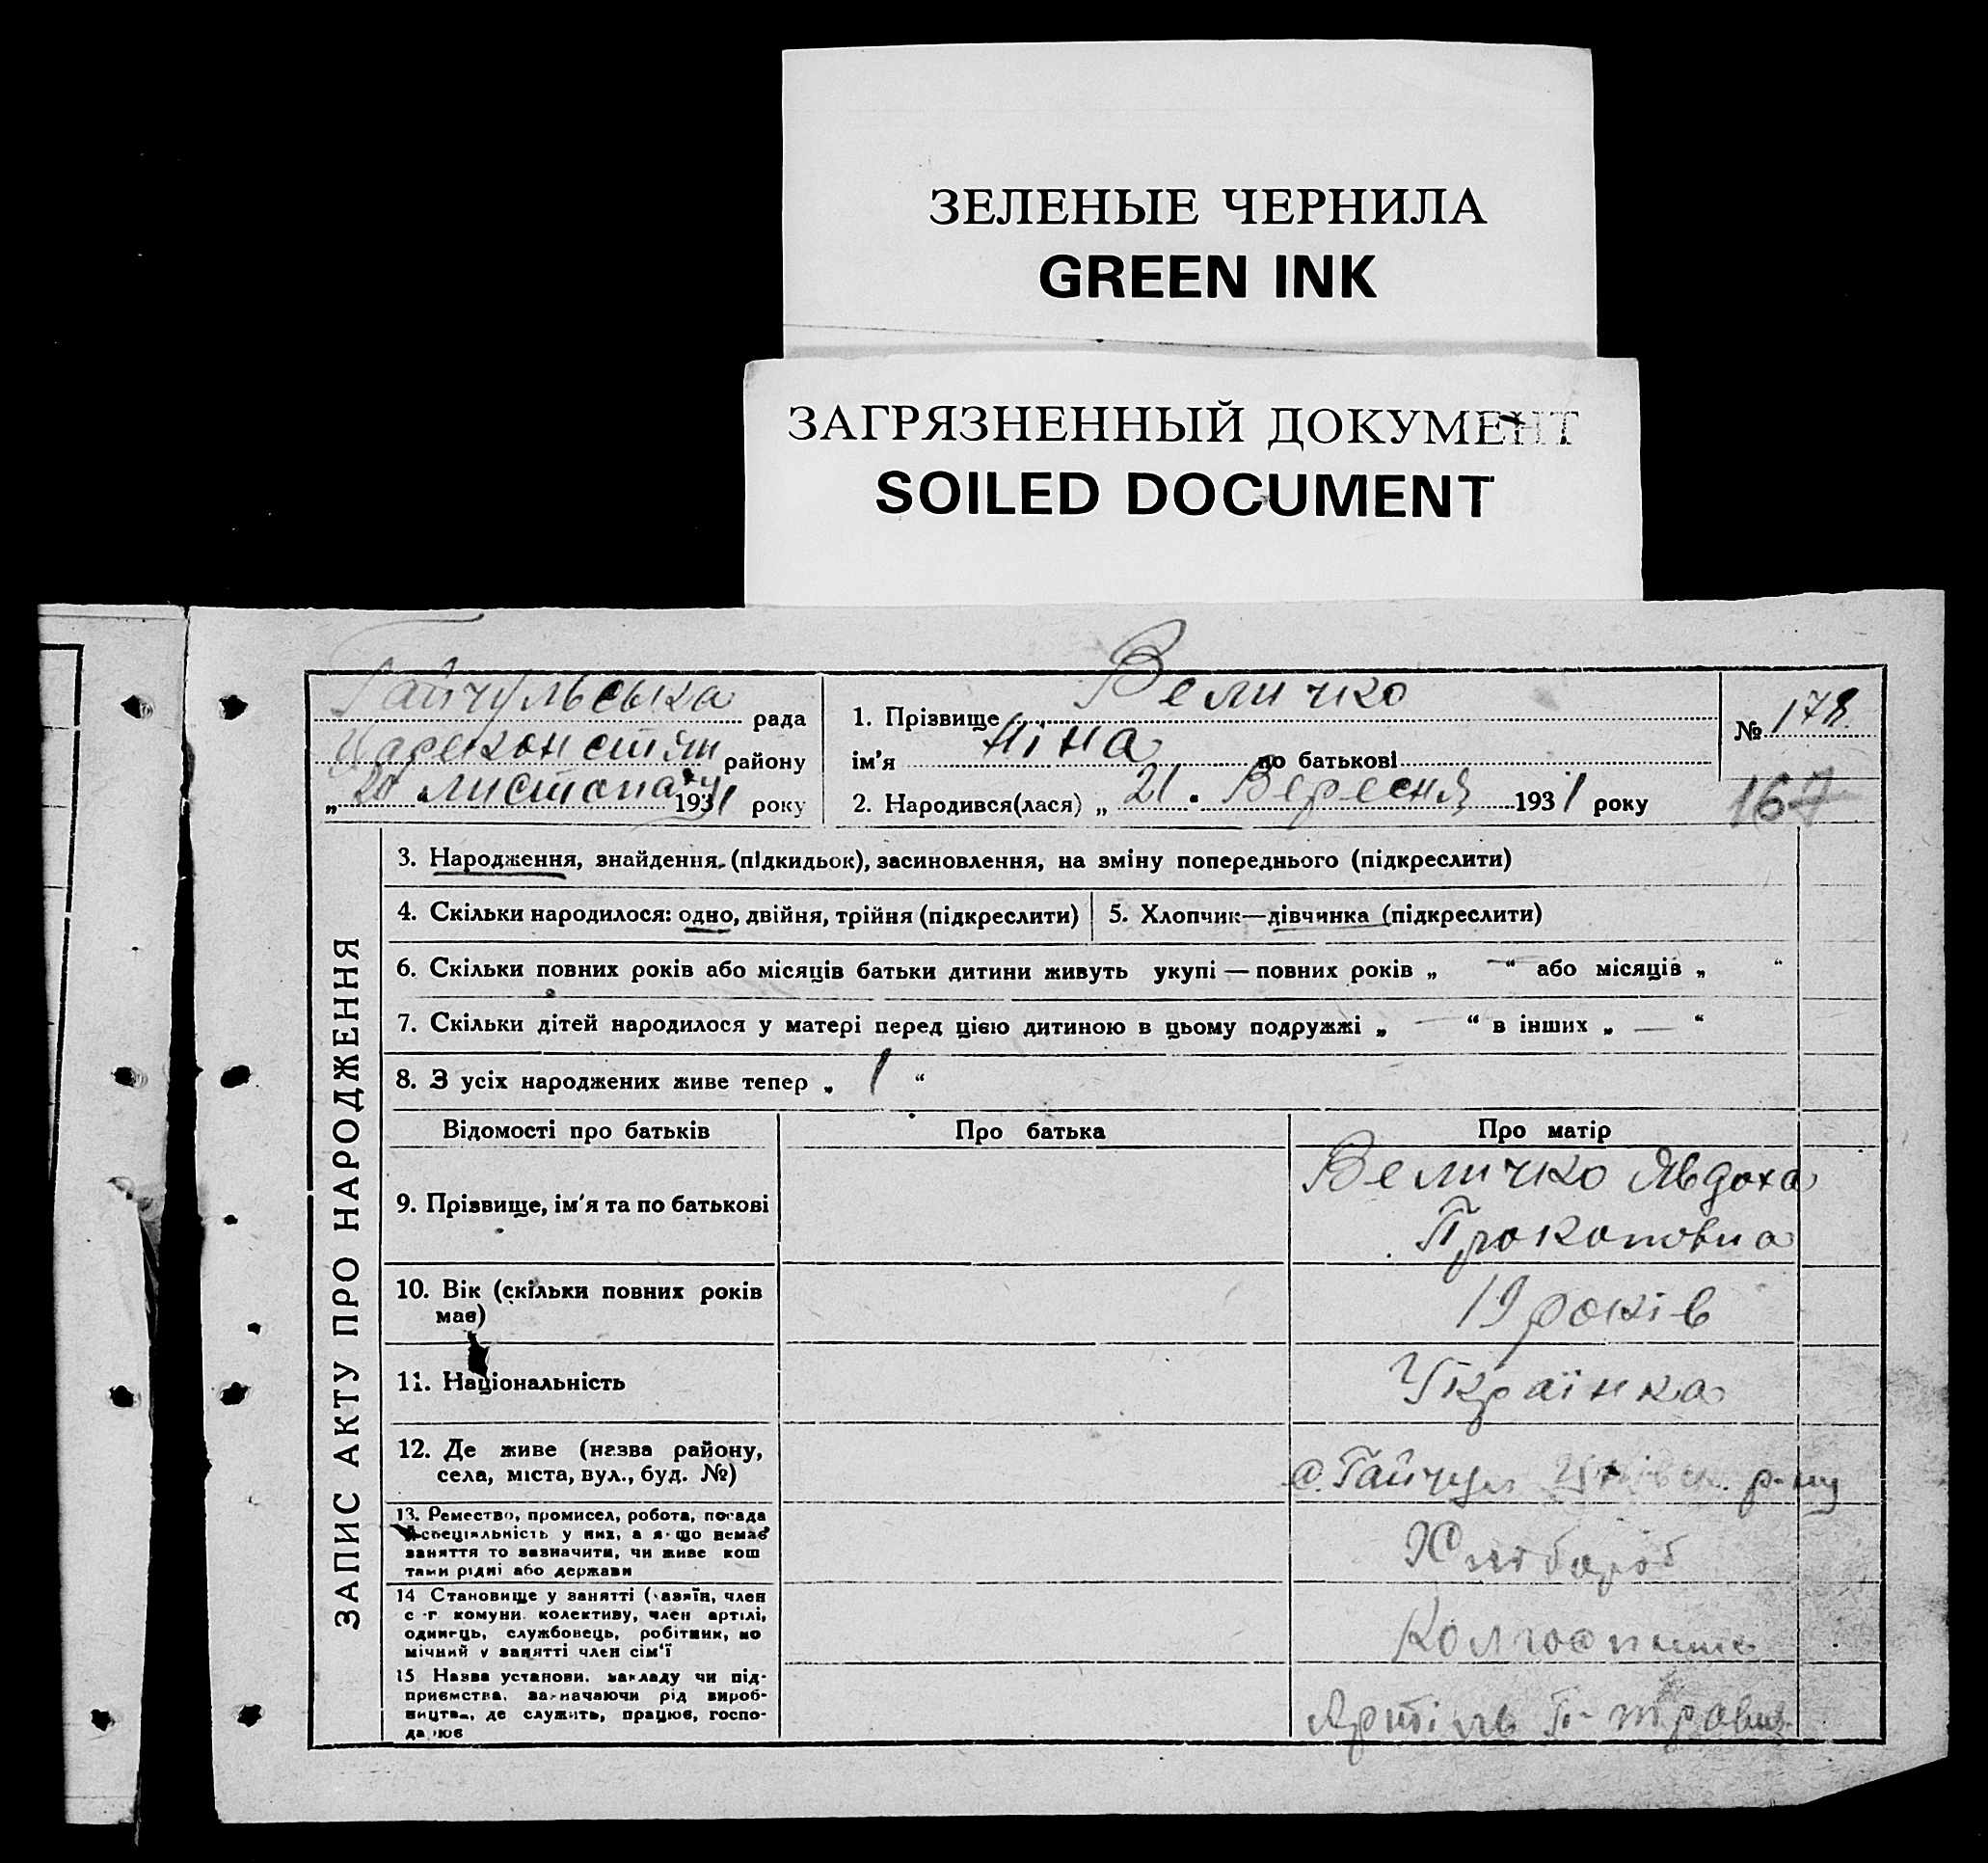 ЗЕЛЕНЫЕ ЧЕРНИЛА
GREEN INK
ЗАГРЯЗНЕННЫЙ ДОКУМЕНТ
SOILED DOCUMENT
Гайчульська рада
Царекон стян району
„ 20 листопаду 1931 року
1. Прізвище Величко
ім’я Ніна по батькові
2. Народився(лася) „ 21 . Вересня 1931 року
№ 178
167
ЗАПИС АКТУ ПРО НАРОДЖЕННЯ
3. Народження, знайдення, (підкидьок), засиновлення, на зміну попереднього (підкреслити)
4. Скільки народилося: одно, двійня, трійня (підкреслити)
5. Хлопчик—дівчинка (підкреслити)
6. Скільки повних років або місяців батьки дитини живуть укупі — повних років „ — “ або місяців „ “
7. Скільки дітей народилося у матері перед цією дитиною в цьому подружжі „ — “ в інших „ — “
8. З усіх народжених живе тепер „ 1 “
Відомості про батьків
Про батька
Про матір
9. Прізвище, ім’я та по батькові
Величко Явдоха
Прокоповна
10. Вік (скільки повних років
має)
19 років
11. Національність
Українка
12. Де живе (назва району,
села, міста, вул., буд. №)
с. Гайчул р-ну
13. Ремество, промисел, робота, посада
й спеціяльність у них, а якщо немає
заняття то зазначити, чи живе кош
тами рідні або держави
Хлібороб
14 Становище у занятті (хазяїн, член
с-г комуни, колективу, член артілі,
одинець, службовець, робітник, по
мічний у занятті член сім’ї
Колгоспниц
15 Назва установи, закладу чи під-
приємства, зазначаючи рід вироб-
ництва, де служить, працює, госпо-
дарює
Артіль 1-травня